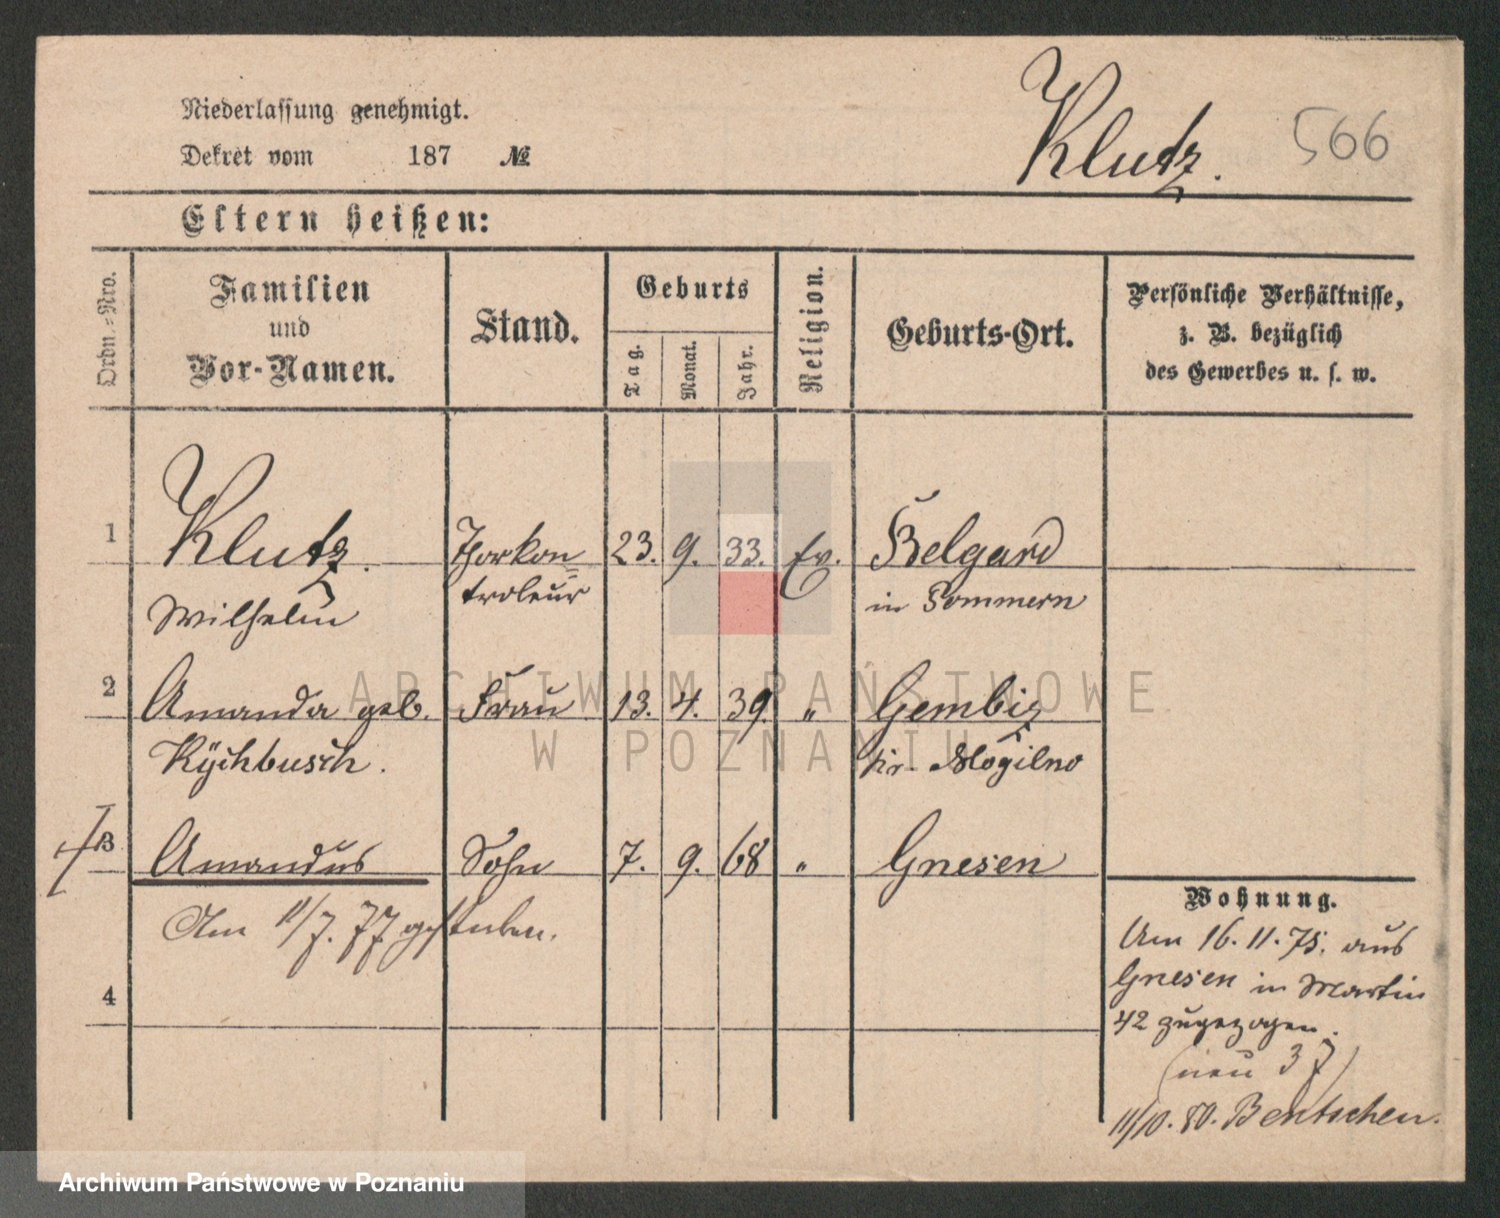 Niederlassung genehmigt.
Dekret vom 187 №
Klutz. 566
Eltern heißen:
Ordn.-Nro.
Familien
und
Vor-Namen.
Stand.
Geburts
Tag.
Monat.
Jahr.
Religion.
Geburts-Ort.
Persönliche Verhältnisse,
z. B. bezüglich
des Gewerbes u. s. w.
1 Klutz. Thorkon= 23. 9. 33. Ev. Belgard
Wilhelm troleur in Pommern
2 Amanda geb. Frau 13. 4. 39. " Gembiz
Kÿchbusch. Kr. Mogilno
3 Amandus Sohn 7. 9. 68 " Gnesen
Am 11/7. 77 gestorben.
4
Wohnung.
Am 16. 11. 75. aus
Gnesen in Martin
42 zugezogen.
(neu 37)
11/10. 80. Bentschen.
ARCHIWUM PAŃSTWOWE
W POZNANIU
Archiwum Państwowe w Poznaniu